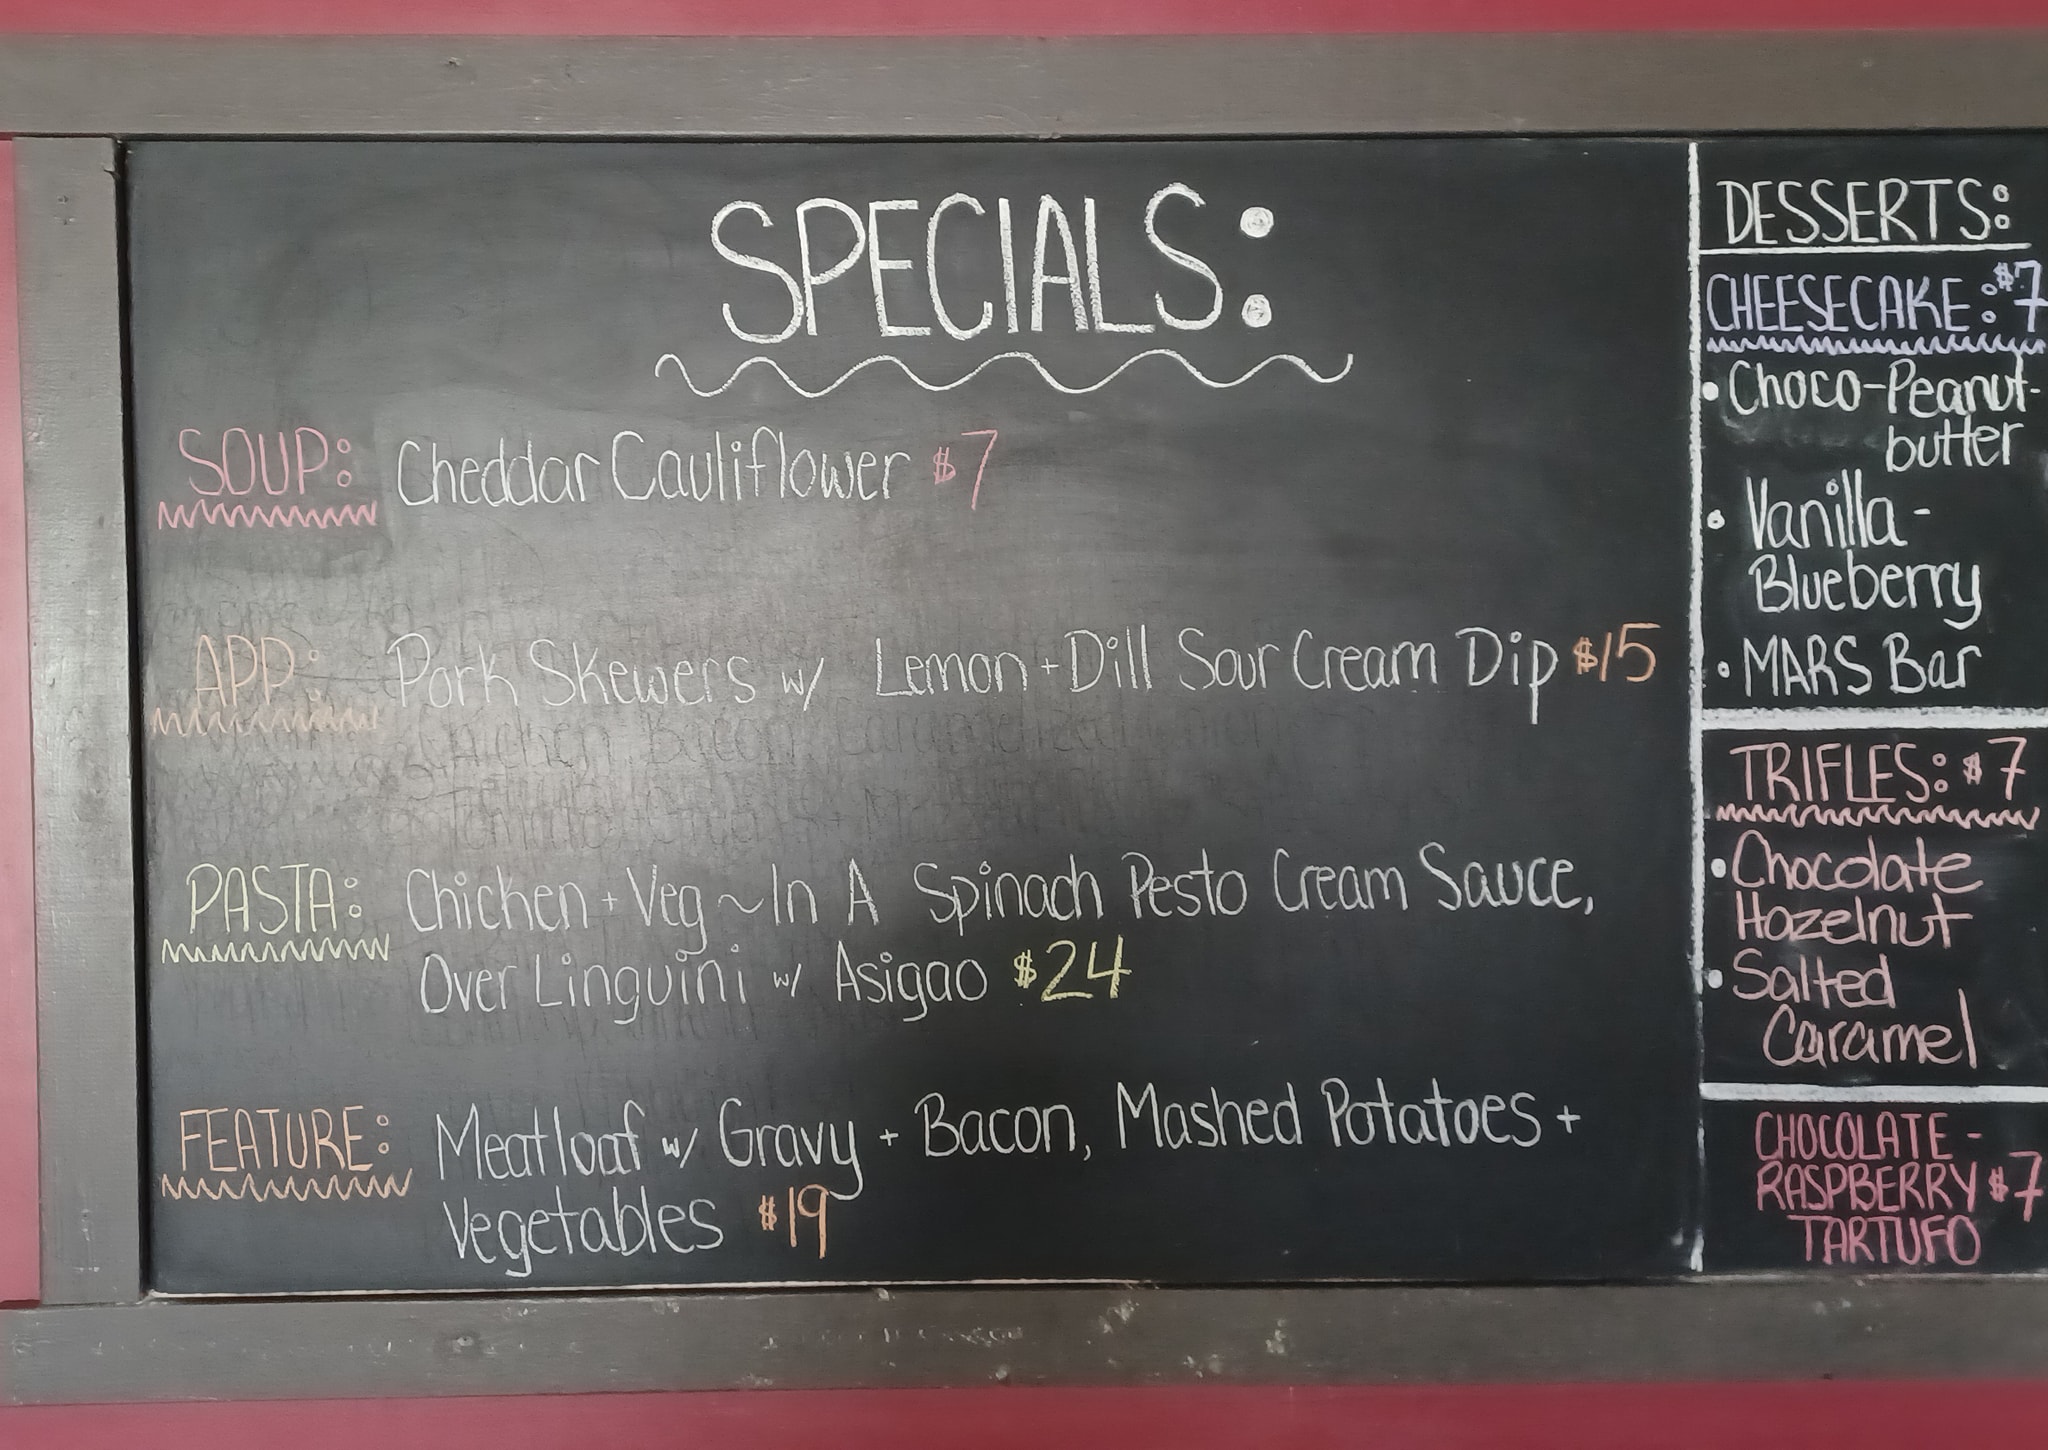 SPECIALS:
SOUP: Cheddar Cauliflower $7
APP: Pork Skewers w/ Lemon + Dill Sour Cream Dip $15
PASTA: Chicken + Veg ~ In A Spinach Pesto Cream Sauce,
Over Linguini w/ Asigao $24
FEATURE: Meatloaf w/ Gravy + Bacon, Mashed Potatoes +
Vegetables $19
DESSERTS:
CHEESECAKE: $7
• Choco-Peanut-
butter
• Vanilla-
Blueberry
• MARS Bar
TRIFLES: $7
• Chocolate
Hazelnut
• Salted
Caramel
CHOCOLATE-
RASPBERRY $7
TARTUFO